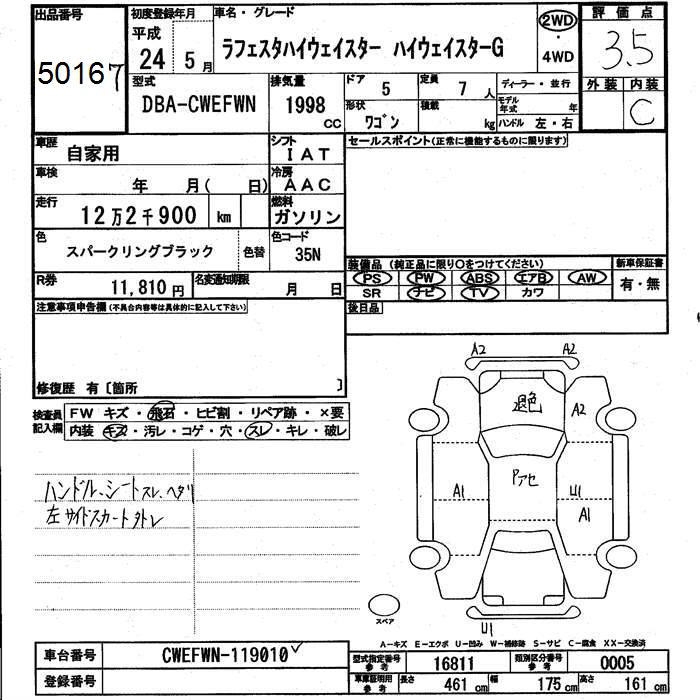 出品番号
50167
初度登録年月
平成
24 5月
車名・グレード
ラフェスタハイウェイスター ハイウェイスターG
2WD
・
4WD
評価点
3.5
外装 内装
C
型式
DBA-CWEFWN
排気量
1998
CC
ドア 5
定員 7人
形状
ワゴン
積載
kg
ディーラー・並行
モデル年式 年
ハンドル 左・右
車歴
自家用
シフト
IAT
セールスポイント(正常に機能するものに限ります)
車検
年 月( 日)
冷房
AAC
走行
12万2千900 km
燃料
ガソリン
色
スパークリングブラック
色替
色コード
35N
装備品 (純正品に限り○をつけてください)
PS PW ABS エアB AW
SR ナビ TV カワ
新車保証書
有・無
R券
11,810円
名変通知期限
月 日
後日品
注意事項申告欄(不具合内容等は具体的に記入して下さい)
修復歴 有〔箇所 〕
検査員記入欄
FW キズ・飛石・ヒビ割・リペア跡・×要
内装 キズ・汚レ・コゲ・穴・スレ・キレ・破レ
ハンドル、シートスレ、ヘタリ
左サイドスカート外レ
A2 A2
退色
A2
Pアセ
A1
U1
A1
スペア
U1
A-キズ E-エクボ U-凹み W-補修跡 S-サビ C-腐食 XX-交換済
車台番号
CWEFWN-119010
登録番号
型式指定番号
参考
16811
類別区分番号
参考
0005
車庫証明用
参考
長さ 461 cm
幅 175 cm
高さ 161 cm